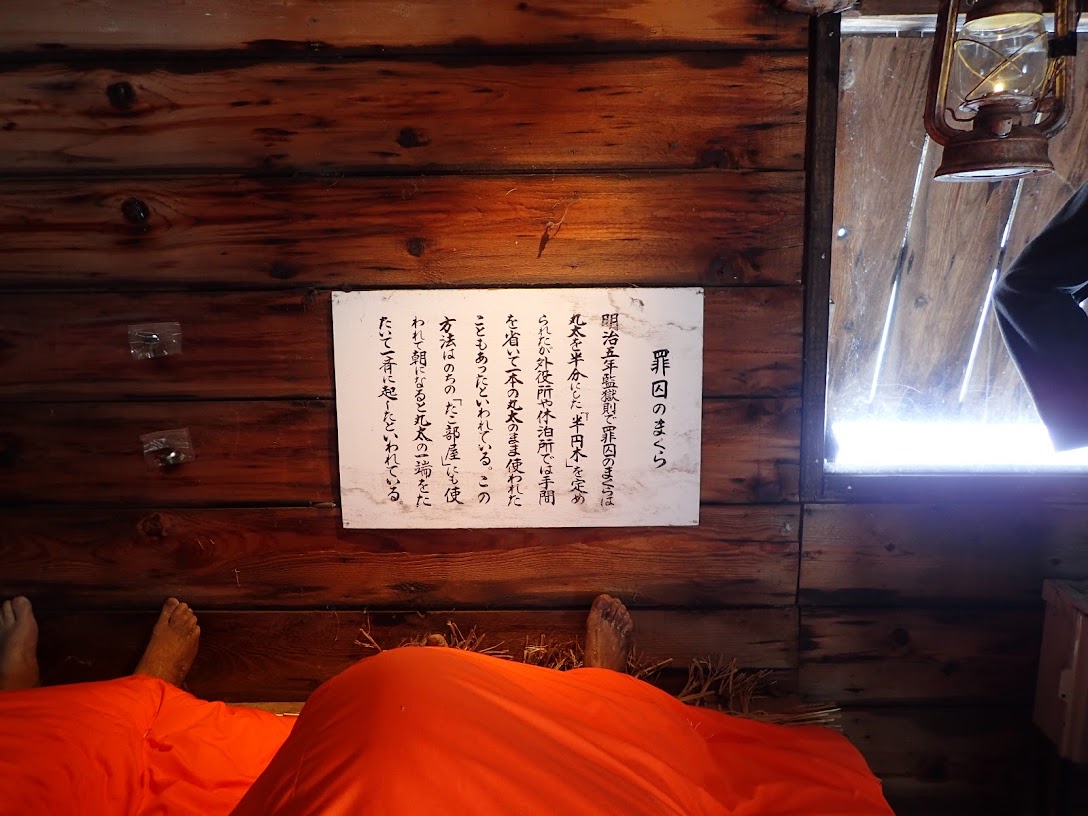 罪囚のまくら
明治五年監獄則で罪囚のまくらは
丸太を半分にした「半円木」を定め
られたが外役所や休泊所では手間
を省いて一本の丸太のまま使われた
こともあったといわれている。この
方法はのちの「たこ部屋」にも使
われて朝になると丸太の一端をた
たいて一斉に起したといわれている